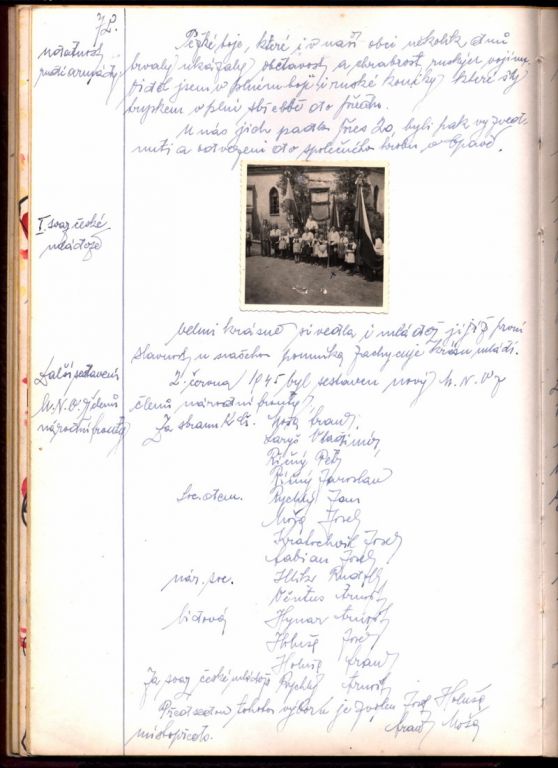 72.
statečnost
rudé armády
Těžké boje, které i v naší obci několik dnů
trvaly ukázaly obětavost a chrabrost ruských vojínů
viděl jsem v plném boji i ruské koníky které šly
tryskem v plné střelbě do předu.
U nás jich padlo přes 20, byli pak vyzved-
nuti a odvezeni do společného hrobu v Opavě.
I. svaz české
mládeže
Velmi krásně si vedla i mládež jejíž první
slavnost u našeho pomníka zachycuje krásu mládí.
Další sestavení
M.N.V. z členů
národní fronty
2. června 1945 byl sestaven nový M.N.V. z
členů národní fronty
Za stranu K.Č. Moša Frant.
Laryš Vladimír
Říčný Petr
Říčný Jaroslav
Soc. dem. Rychlý Jan
Moša Josef
Kratochvil Josef
Fabian Josef
nár. soc. Rudolf
Arnošt
lidová Hynar Arnošt
Holuša Josef
Holuša Frant.
Za svaz české mládeže Rychlý Arnošt
Předsedou tohoto výboru je zvolen Josef Holuša
místopředs. Frant. Moša